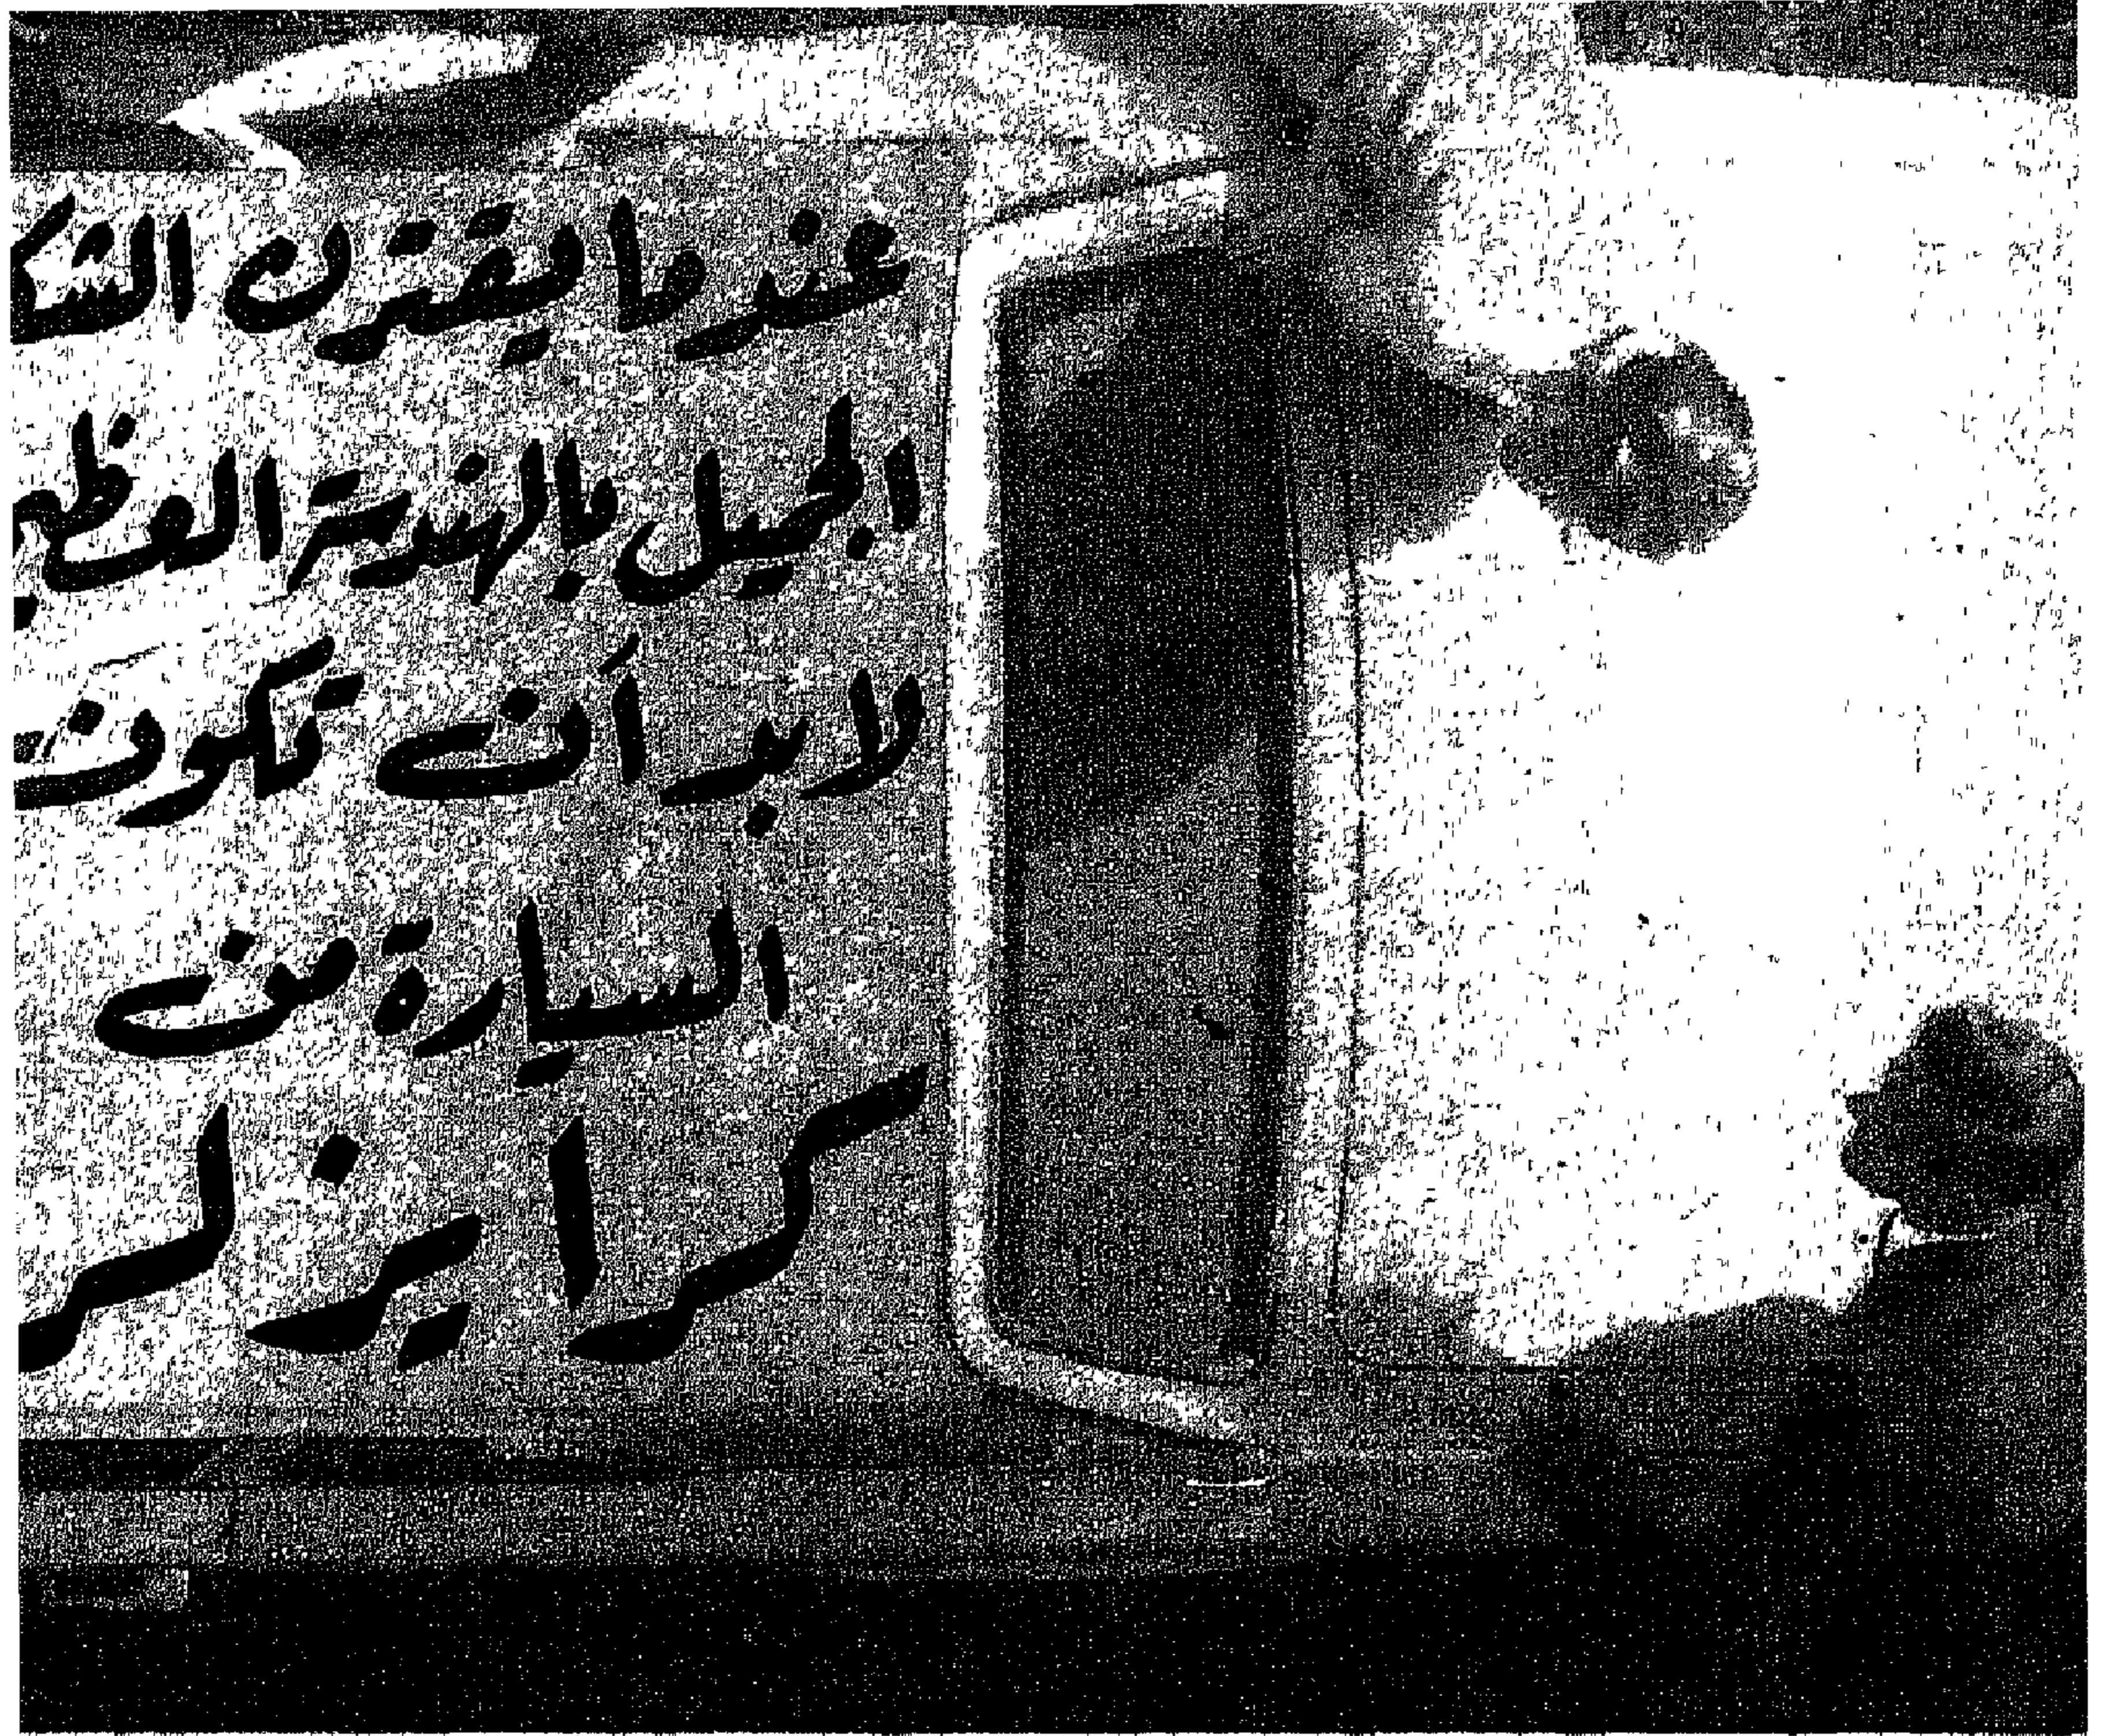 عندما يقترن الشكـ
الجميل بالهندسة العظيـ
لابد أن تكون
السيارة من
كرايزلر